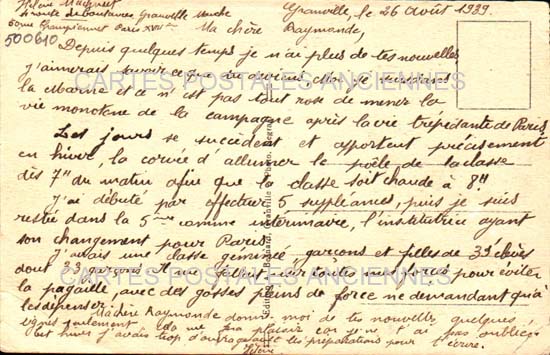 Hélène
Granville, le 26 Août 1939
Granville Manche
Championnet Paris XVIIIe
Ma chère Raymonde,
500610
Depuis quelques temps je n'ai plus de tes nouvelles
j'aimerais savoir ce que tu deviens. Moi je
la Marne elle n'est pas tout rose de mener la
vie monotone de la campagne après la vie trépidante de Paris
Les jours se succèdent et apportent précisément
en hiver, la corvée d'allumer le poêle de la classe
dès 7H du matin afin que la classe soit chaude à 8H
J'ai débuté par effectuer 5 suppléances, puis je suis
restée dans la 5me comme intérimaire, l'institutrice ayant
son changement pour Paris.
J'avais une classe geminée, garçons et filles de 35 élèves
dont 23 garçons. Il me fallait toutes mes forces pour éviter
la pagaille, avec des gosses pleins de force ne demandant qu'à
les dépenser.
Ma chère Raymonde donne moi de tes nouvelles quelques
lignes seulement cela me fera plaisir car je ne t'ai pas oubliée
cet hiver j'avais trop d'ouvrage avec les préparations pour t'écrire.
Hélène
CARTES POSTALES ANCIENNES
CARTES POSTALES ANCIENNES